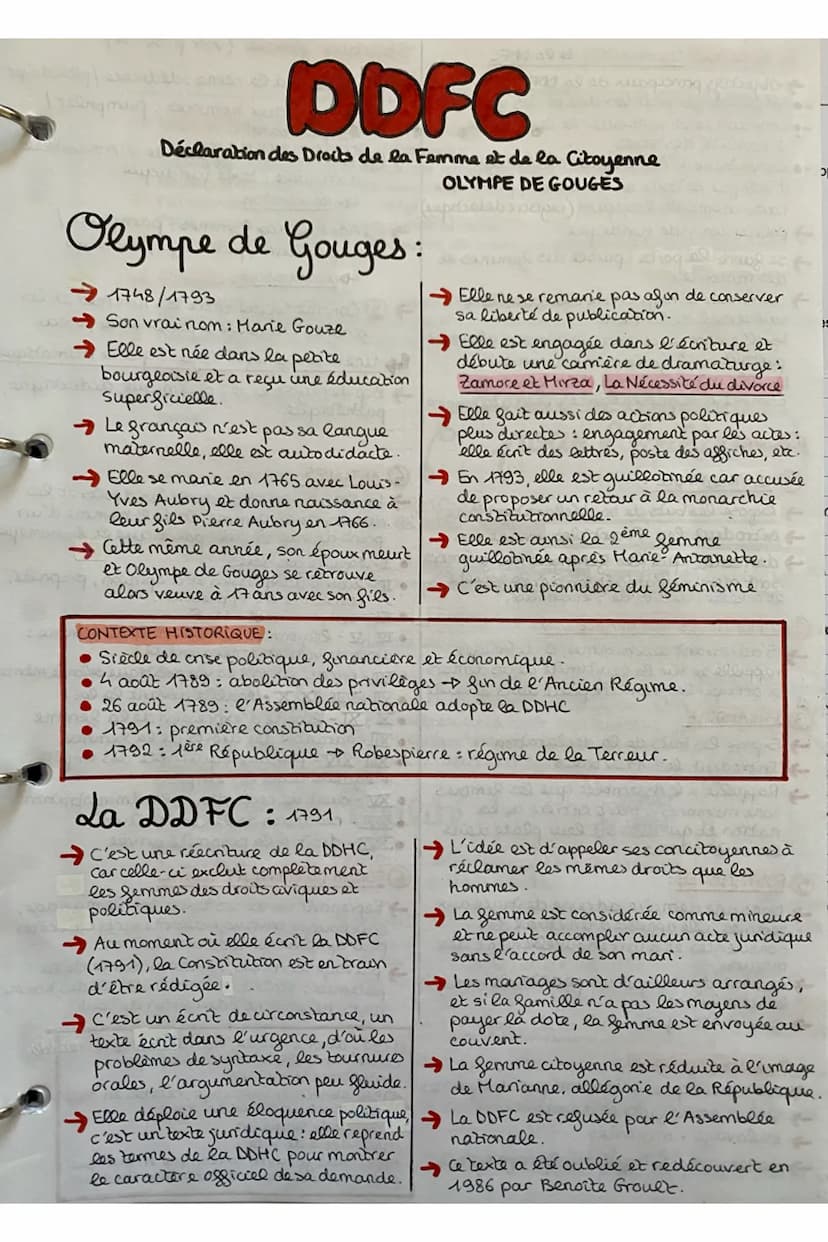 DDFC
Déclaration des Droits de la Femme et de la Citoyenne
OLYMPE DE GOUGES
Olympe de Gouges :
→ 1748/1793
→ Son vrai nom : Marie Gouze
→ Elle est née dans la petite
bourgeoisie et a reçu une éducation
superficielle.
→ Le français n'est pas sa langue
maternelle, elle est autodidacte.
→ Elle se marie en 1765 avec Louis-
Yves Aubry et donne naissance à
leur fils Pierre Aubry en 1766.
→ Cette même année, son époux meurt
et Olympe de Gouges se retrouve
alors veuve à 17 ans avec son fils.
→ Elle ne se remarie pas afin de conserver
sa liberté de publication.
→ Elle est engagée dans l'écriture et
débute une carrière de dramaturge :
Zamore et Mirza, La Nécessité du divorce
→ Elle fait aussi des actions politiques
plus directes : engagement par les actes :
elle écrit des lettres, poste des affiches, etc.
→ En 1793, elle est guillotinée car accusée
de proposer un retour à la monarchie
constitutionnelle.
→ Elle est ainsi la 2ème femme
guillotinée après Marie-Antoinette.
→ C'est une pionnière du féminisme
CONTEXTE HISTORIQUE :
• Siècle de crise politique, financière et économique.
• 4 août 1789 : abolition des privilèges → fin de l'Ancien Régime.
• 26 août 1789 : l'Assemblée nationale adopte la DDHC
• 1791 : première constitution
• 1792 : 1ère République → Robespierre : régime de la Terreur.
La DDFC : 1791
→ C'est une réécriture de la DDHC,
car celle-ci exclut complètement
les femmes des droits civiques et
politiques.
→ Au moment où elle écrit la DDFC
(1791), la Constitution est en train
d'être rédigée.
→ C'est un écrit de circonstance, un
texte écrit dans l'urgence, d'où les
problèmes de syntaxe, les tournures
orales, l'argumentation peu fluide.
→ Elle déploie une éloquence politique,
c'est un texte juridique : elle reprend
les termes de la DDHC pour montrer
le caractère officiel de sa demande.
→ L'idée est d'appeler ses concitoyennes à
réclamer les mêmes droits que les
hommes.
→ La femme est considérée comme mineure
et ne peut accomplir aucun acte juridique
sans l'accord de son mari.
→ Les mariages sont d'ailleurs arrangés,
et si la famille n'a pas les moyens de
payer la dote, la femme est envoyée au
couvent.
→ La femme citoyenne est réduite à l'image
de Marianne, allégorie de la République.
→ La DDFC est refusée par l'Assemblée
nationale.
→ Ce texte a été oublié et redécouvert en
1986 par Benoîte Groult.